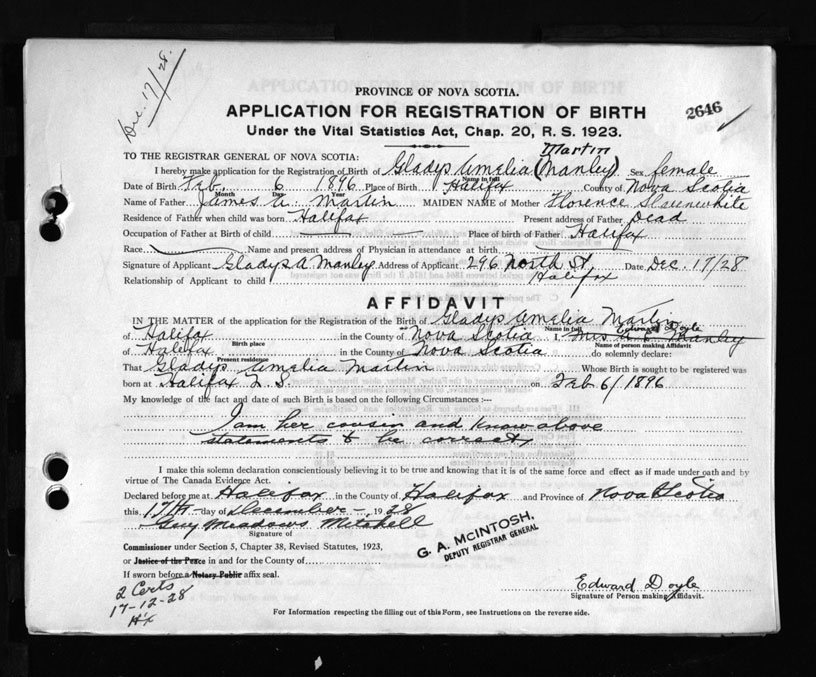 Dec. 17/28.
PROVINCE OF NOVA SCOTIA.
APPLICATION FOR REGISTRATION OF BIRTH
2646
Under the Vital Statistics Act, Chap. 20, R. S. 1923.
TO THE REGISTRAR GENERAL OF NOVA SCOTIA:
Martin
I hereby make application for the Registration of Birth of Gladys Amelia (Manley) Sex female
Name in full
Date of Birth Feb. 6 1896 Place of Birth Halifax County of Nova Scotia
Month Day Year
Name of Father James A Martin MAIDEN NAME of Mother Florence Slaunwhite
Residence of Father when child was born Halifax Present address of Father Dead
Occupation of Father at Birth of child Place of birth of Father Halifax
Race Name and present address of Physician in attendance at birth
Signature of Applicant Gladys A Manley Address of Applicant 296 North St Date Dec. 17/28
Halifax
Relationship of Applicant to child
AFFIDAVIT
IN THE MATTER of the application for the Registration of the Birth of Gladys Amelia Martin
Name in full
Edward Doyle
of Halifax in the County of Nova Scotia I, Mrs Manley
Birth place
Name of person making Affidavit
of Halifax in the County of Nova Scotia do solemnly declare:
Present residence
That Gladys Amelia Martin Whose Birth is sought to be registered was
born at Halifax N.S. on Feb 6/1896
My knowledge of the fact and date of such Birth is based on the following Circumstances :—
I am her cousin and know above
statements to be correct
I make this solemn declaration conscientiously believing it to be true and knowing that it is of the same force and effect as if made under oath and by
virtue of The Canada Evidence Act.
Declared before me at Halifax in the County of Halifax and Province of Nova Scotia
this 17th day of December 1928
Guy Meadows Mitchell
Signature of
G. A. McINTOSH,
DEPUTY REGISTRAR GENERAL
Commissioner under Section 5, Chapter 38, Revised Statutes, 1923,
or Justice of the Peace in and for the County of
If sworn before a Notary Public affix seal.
Edward Doyle
Signature of Person making Affidavit.
2 Certs
17-12-28
Hx
For Information respecting the filling out of this Form, see Instructions on the reverse side.